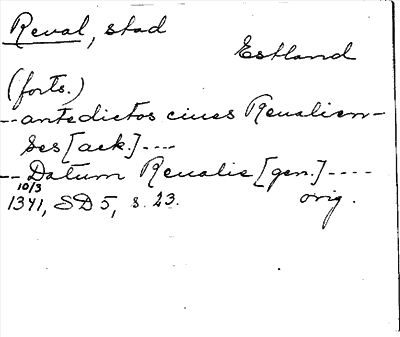 Reval, stad
Estland
(forts.)
--antedictos ciues Reualien-
ses [ack.]----
--Datum Reualie [gen.]----
10/3
1341, SD 5, s. 23. orig.